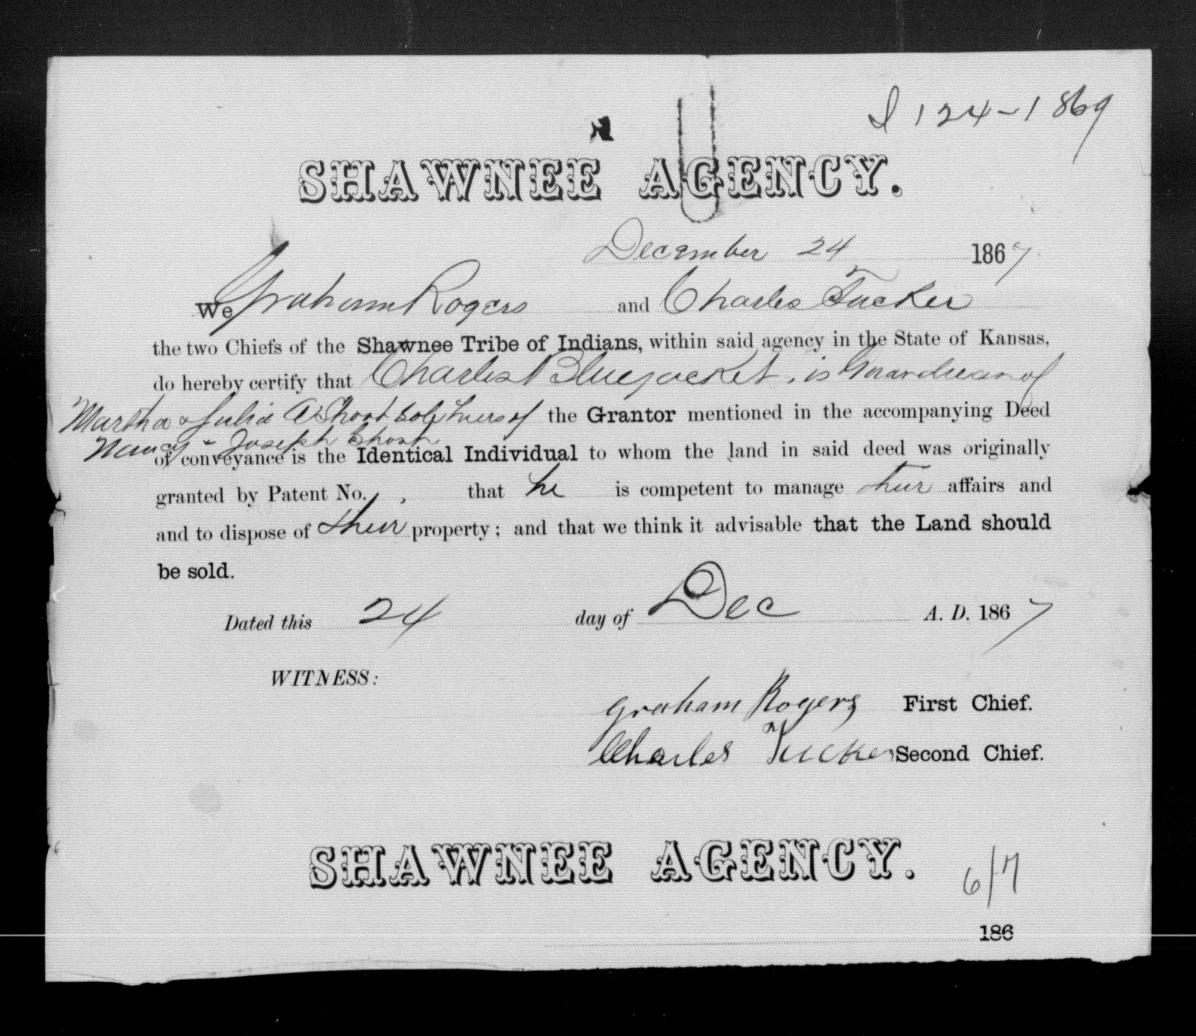 I 124-1869
SHAWNEE AGENCY.
December 24 1867
We Graham Rogers and Charles Tucker
the two Chiefs of the Shawnee Tribe of Indians, within said agency in the State of Kansas,
do hereby certify that Charles Bluejacket, is Guardian of
Martha & Julia A Shoot heirs of the Grantor mentioned in the accompanying Deed
Nancy & Joseph
of conveyance is the Identical Individual to whom the land in said deed was originally
granted by Patent No. , that he is competent to manage their affairs and
and to dispose of their property; and that we think it advisable that the Land should
be sold.
Dated this 24 day of Dec A. D. 1867
WITNESS:
Graham Rogers First Chief.
Charles Tucker Second Chief.
SHAWNEE AGENCY.
6/7
186